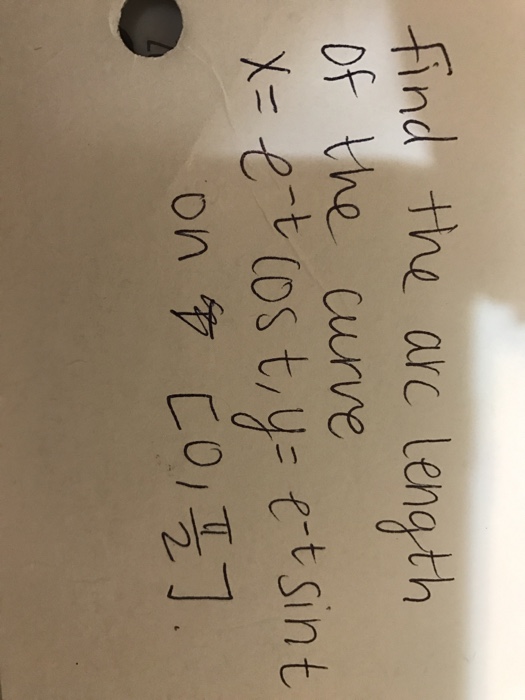 find the arc length
of the curve
x = e^-t cos t, y = e^-t sint
on [0, π/2].